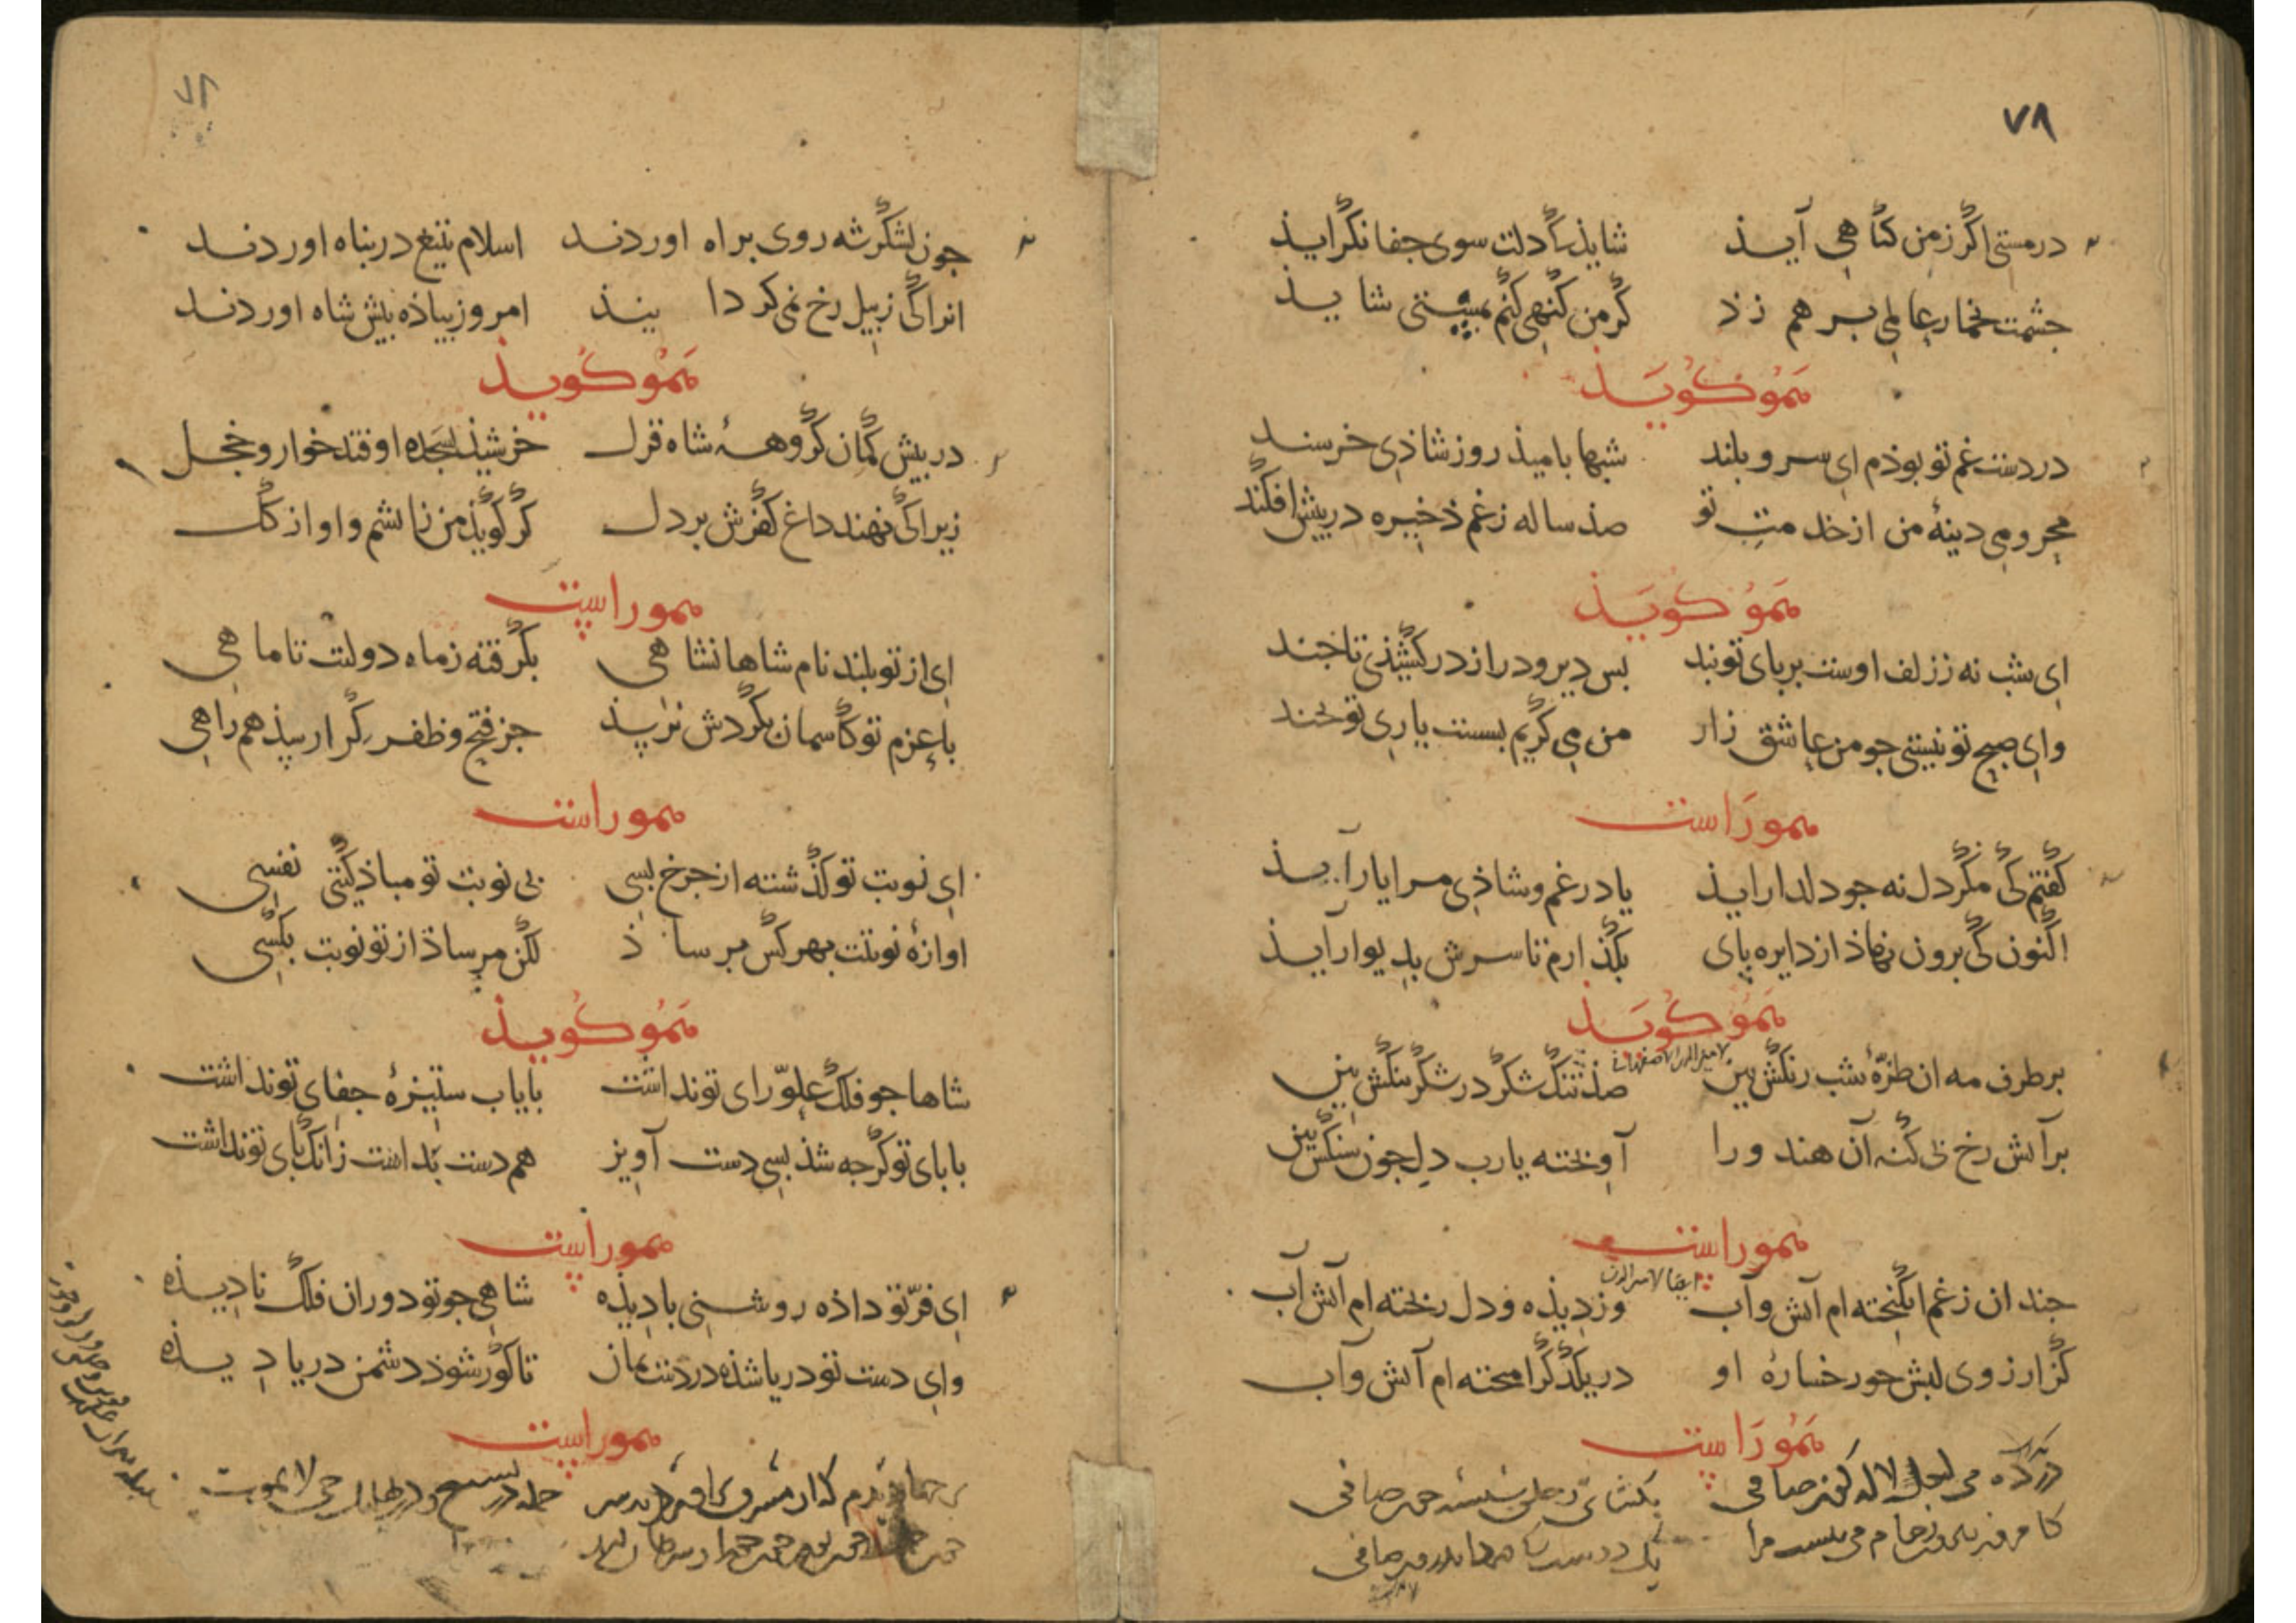 ۷۸
در مستی اگر ز من کناهی آیذ شایذ کی دلت سوی جفا نکرایذ
جشمت بخمار عالمی بر هم زذ کر من کنهی کنم بمستی شایذ
هموکویذ
در دست غم تو بوذم ای سرو بلند شبها بامیذ روز شاذی خرسند
محرومی دینهٔ من از خدمت تو صذ ساله ز غم ذخیره در پیش افکند
هموکویذ
ای شب نه ز زلف اوست بر پای تو بند بس دیر و دراز در کشیذی تا جند
وای صبح تو نیستی جو من عاشق زار من می کریم بست یاری تو بخند
هموراست
کفتم کی مکر دل نه جو دلدار ایذ یا در غم و شاذی مرا یار آیذ
اکنون کی برون نهاذ از دایره پای بکذارم تا سرش بدیوار آیذ
هموکویذ
بر طرف مه ان طرّهٔ شب رنکش بین صذ تنک شکر در شکر تنکش بین
بر آتش رخ بی کنه آن هندو را آویخته یارب دل جون سنکش بین
هموراست
جندان ز غم انکیخته ام آتش و آب وز دیذه و دل ریخته ام آتش و آب
کز ارزوی لبش جو رخسارهٔ او در یکدکر امیخته ام آتش و آب
هموراست
می لعل لاله کون صافی
جون لشکر شه روی براه اوردند اسلام بتیغ در بناه اوردند
انرا کی ز بیل رخ نمی کردانیذ امروز بیاذه بیش شاه اوردند
هموکویذ
در بیش کمان کروههٔ شاه قزل خرشیذ بسجده اوفتد خوار و خجل
زیرا کی نهند داغ کفرش بر دل کر کویذ من زاتشم و او از کل
هموراست
ای از تو بلند نام شاهانشاهی بکرفته ز ماه دولتت تا ماهی
با عزم تو کاسمان بکردش نرسذ جز فتح و ظفر کرا رسذ همراهی
هموراست
ای نوبت تو کذشته از جرخ بسی بی نوبت تو مباذ کیتی نفسی
اوازهٔ نوبتت بهر کس برساذ لکن مرساذ از تو نوبت بکسی
هموکویذ
شاها جو فلک علوّ رای تو نداشت بایاب ستیزهٔ جفای تو نداشت
با بای تو کرجه شذ بسی دست آویز هم دست بداشت زانک بای تو نداشت
هموراست
ای فرّ تو داذه روشنی با دیذه شاهی جو تو دوران فلک نادیذه
وای دست تو دریا شذه در دست بمان تا کور شوذ دشمن دریا دیذه
هموراست